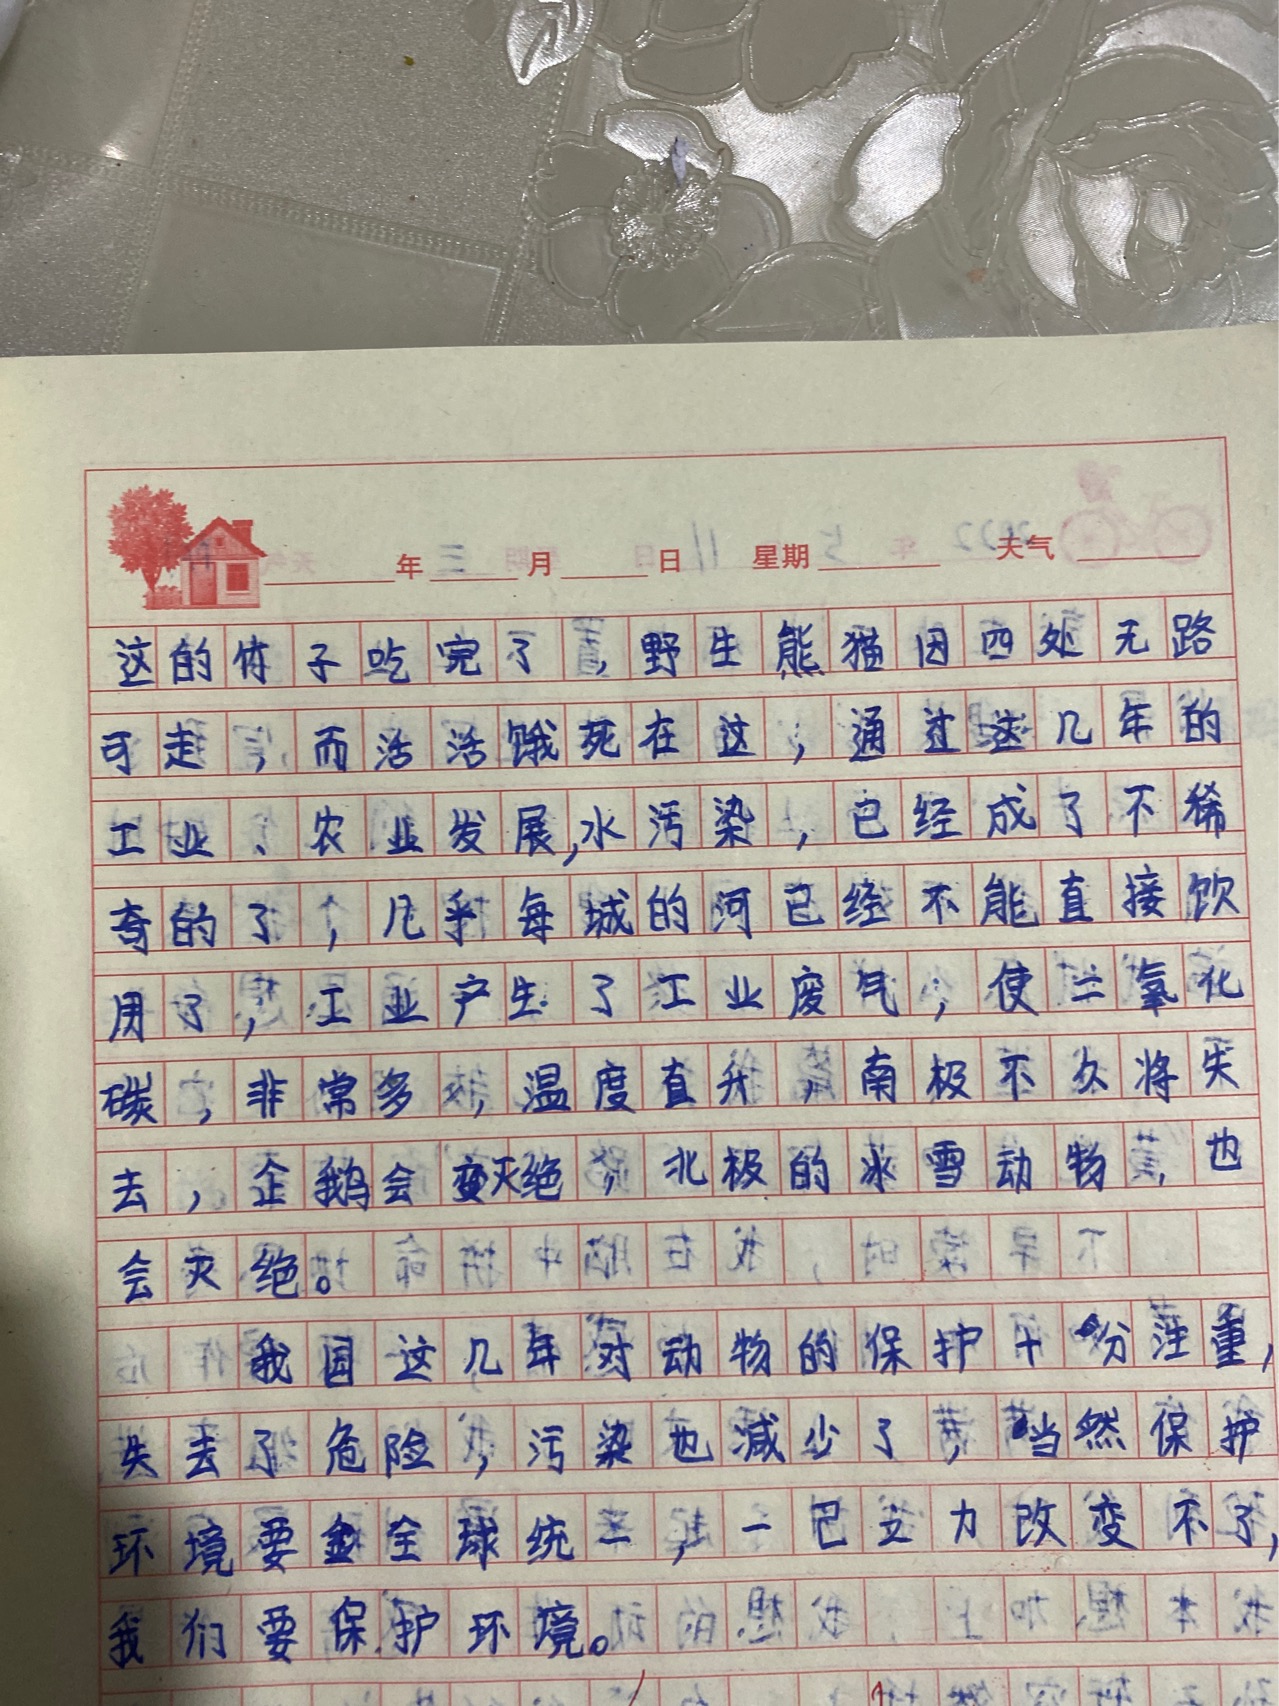 年 月 日 星期 天气
这的竹子吃完了,野生熊猫因四处无路
可走,而活活饿死在这,通过这几年的
工业、农业发展,水污染,已经成了不稀
奇的了,几乎每城的河已经不能直接饮
用了,工业产生了工业废气,使二氧化
碳,非常多,温度直升,南极不久将失
去,企鹅会变灭绝,北极的冰雪动物,也
会灭绝。
我国这几年对动物的保护十分注重,
失去了危险,污染也减少了,当然保护
环境要全球统一,一己之力改变不了,
我们要保护环境。